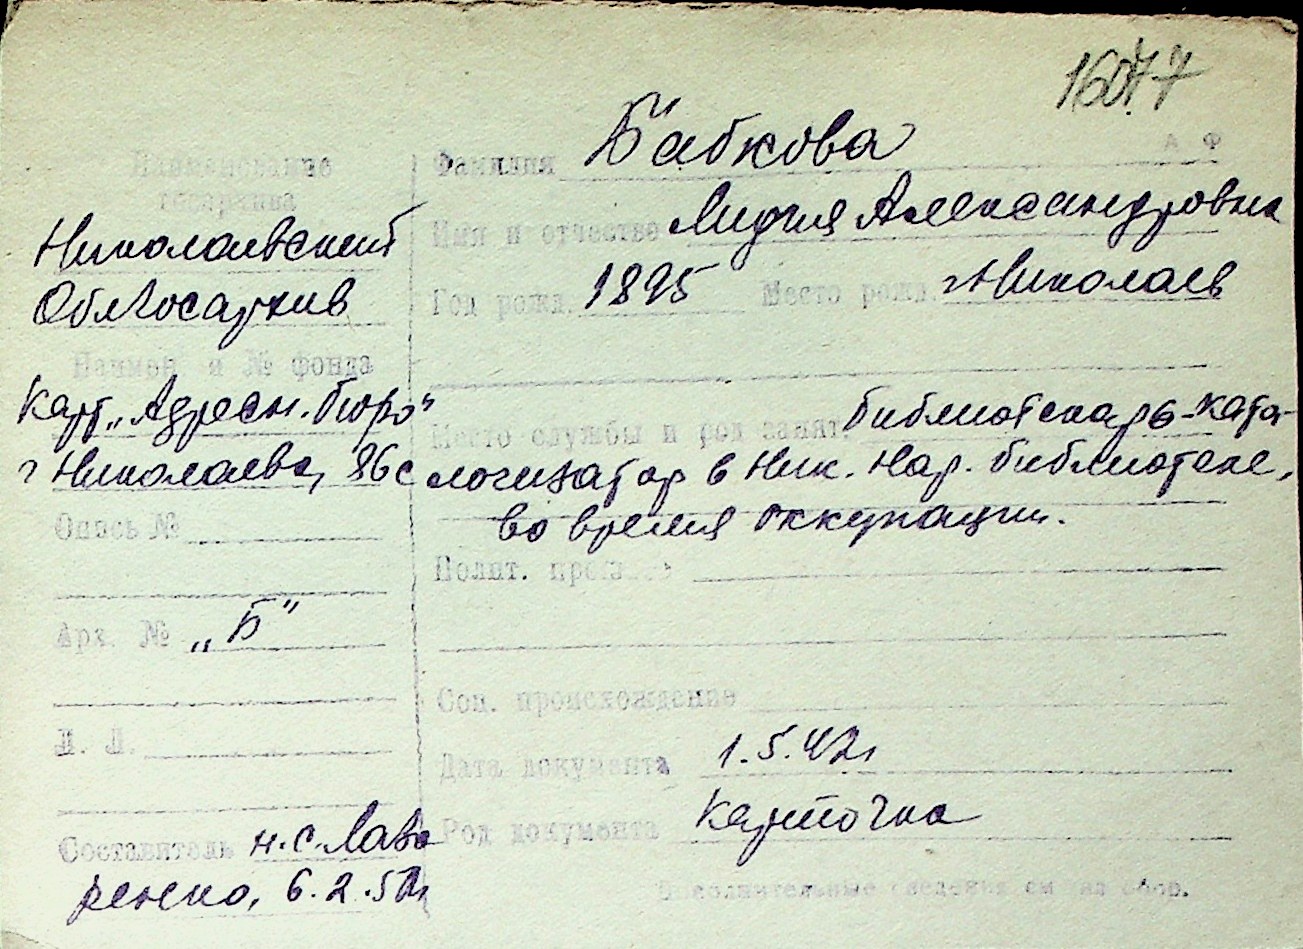 16077
А Ф
Наименование
госархива
Николаевский
Облгосархив
Наимен. и № фонда
Карт. „Адресн. бюро"
г Николаева, 86с
Опись №
Арх. № „Б"
Л. Л.
Составитель н.с. Лавэ
ренко, 6.2.52г
Фамилия Бабкова
Имя и отчество Лидия Александровна
Год рожд. 1895 Место рожд. г. Николаев
Место службы и род занят. библиотекарь-ката-
логизатор в Ник. Нар. библиотеке,
во время оккупации.
Полит.
Соц. происхождение
Дата документа 1.5.42г
Род документа Карточка
Дополнительные сведения см на обор.